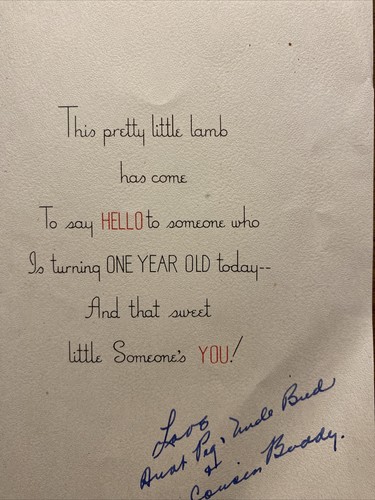 This pretty little lamb
has come
To say HELLO to someone who
Is turning ONE YEAR OLD today--
And that sweet
little Someone's YOU!
Love
Aunt Peg, Uncle Bud
&
Cousin Buddy.